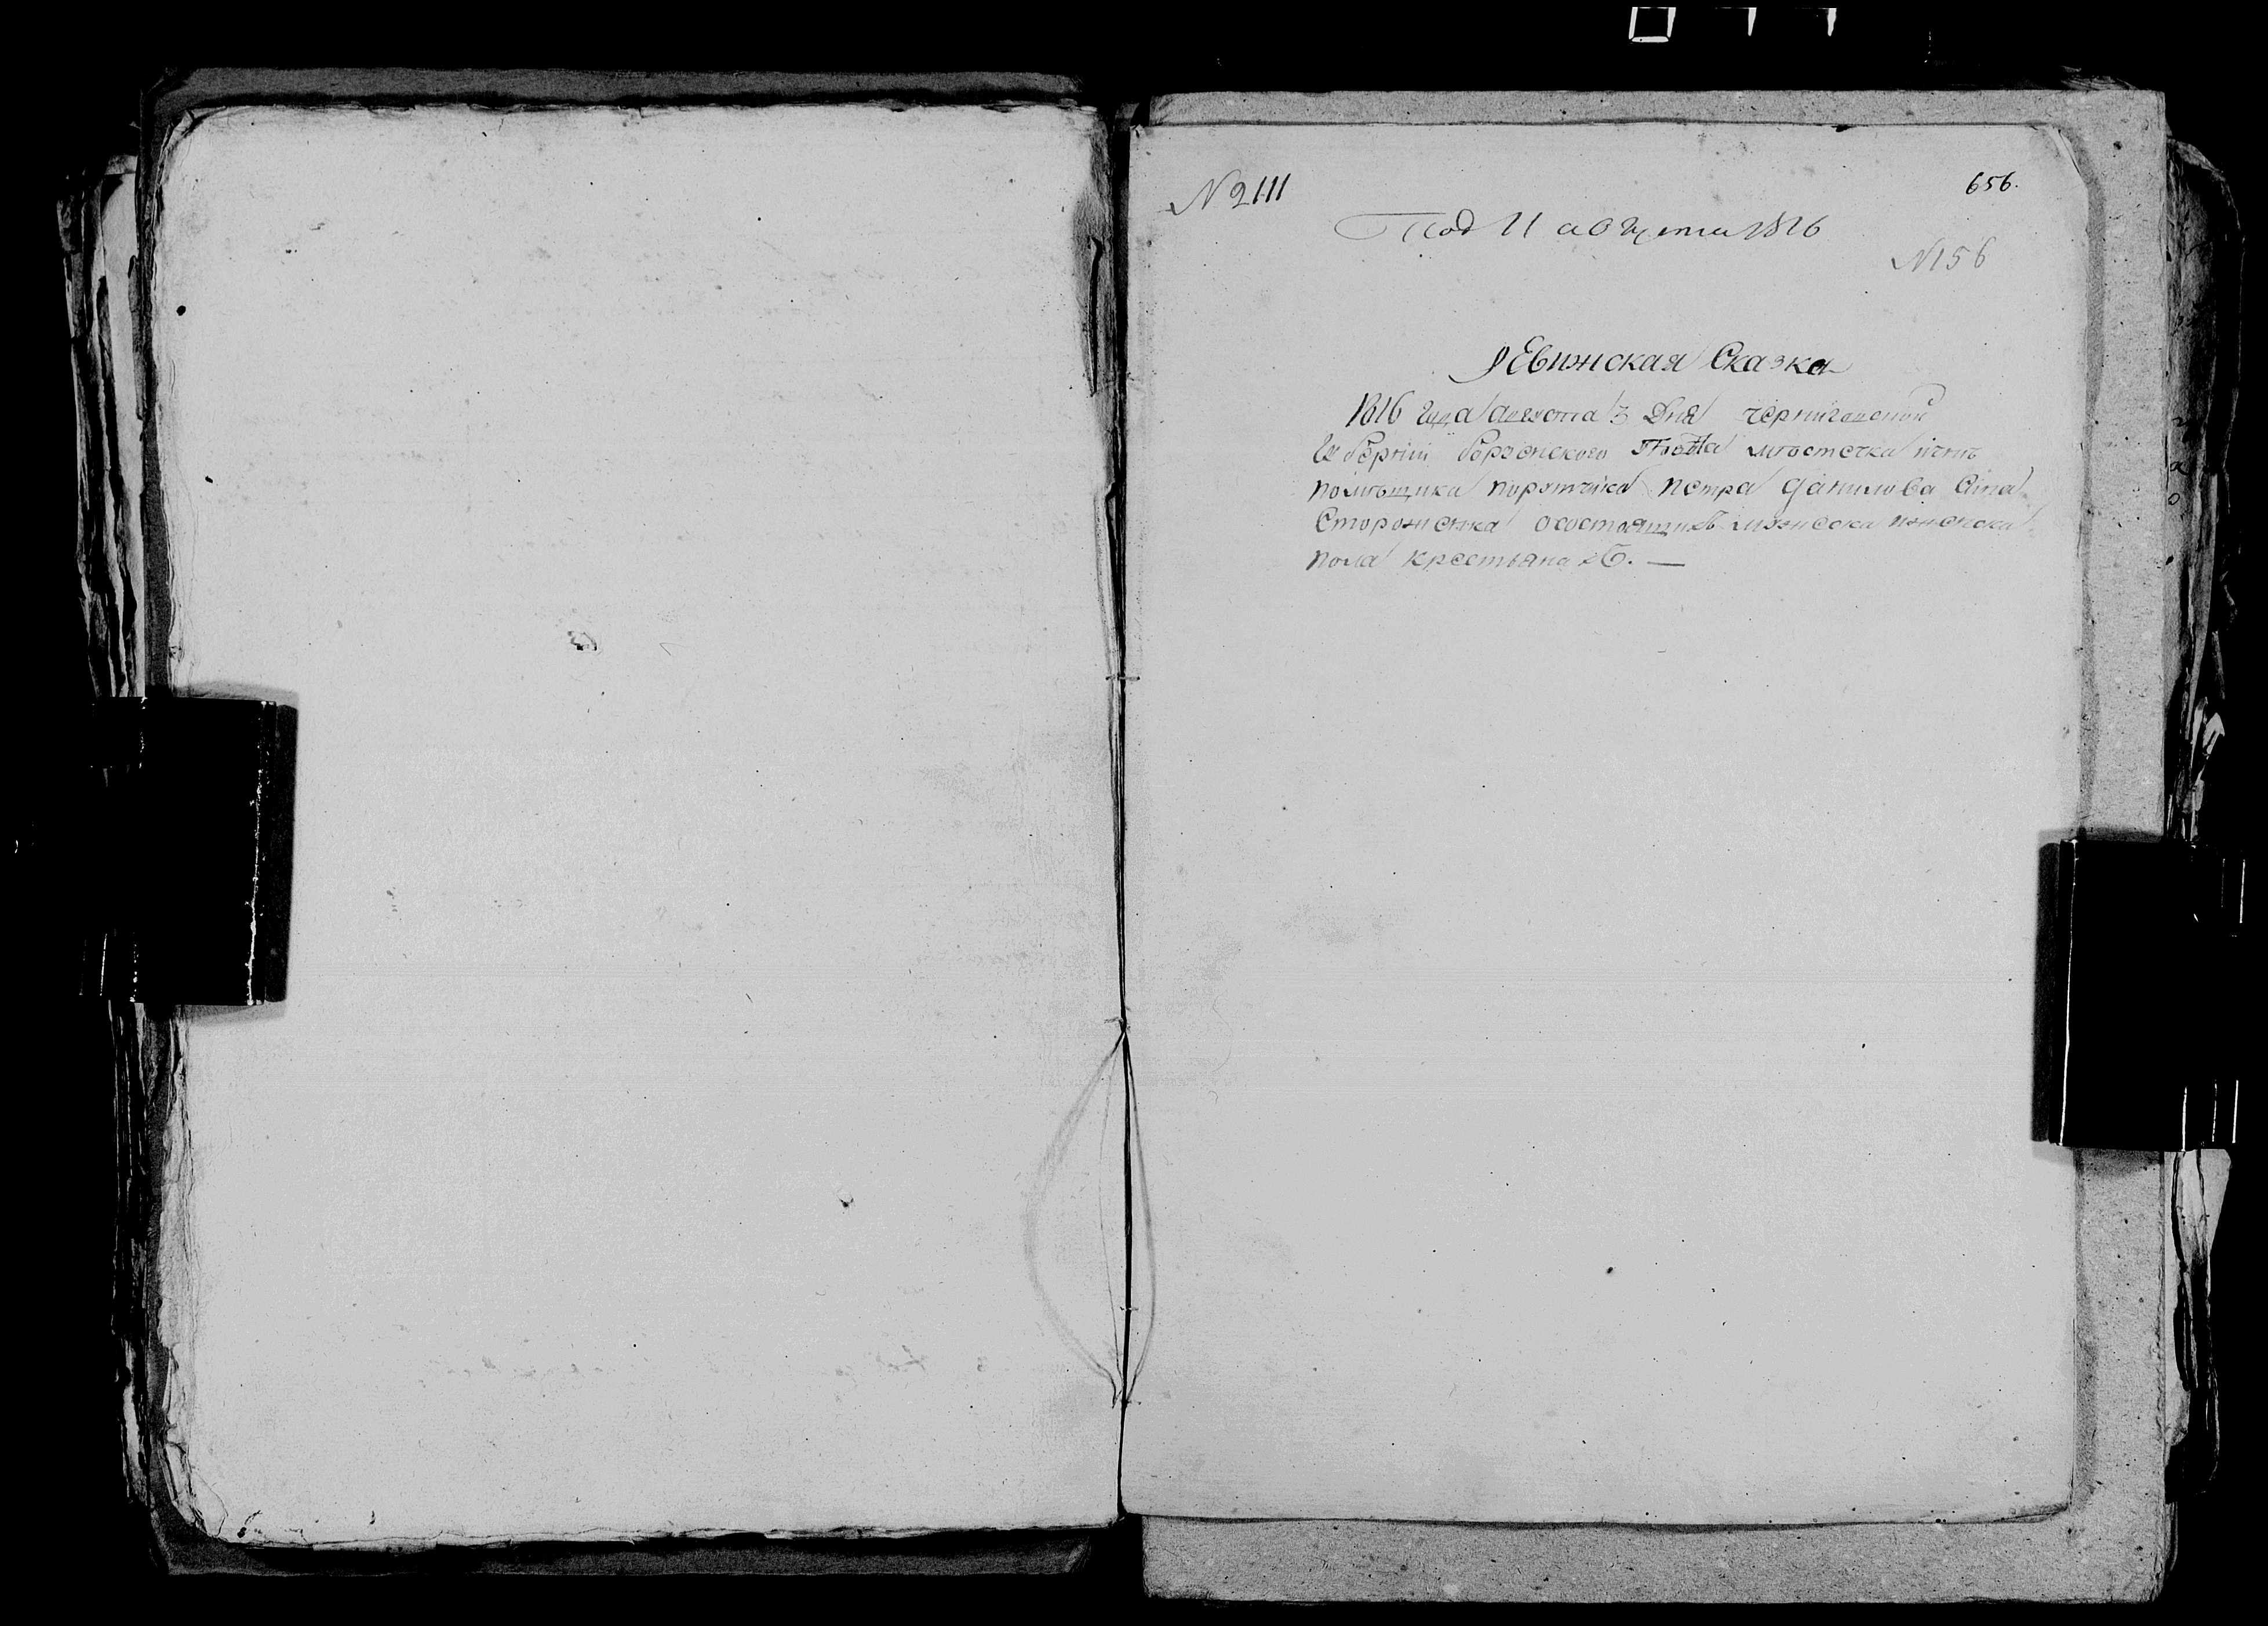 № 2111
656.
Под 11 августа 1816
№156
Ревижская Сказка
1816 года августа 3 Дня черниговской
Губернии борзенского повета мѣстечка ични
помѣщика порутчика петра данилова Сина
Стороженка осостоящихъ мужеска иженска
пола крестьянахъ. —